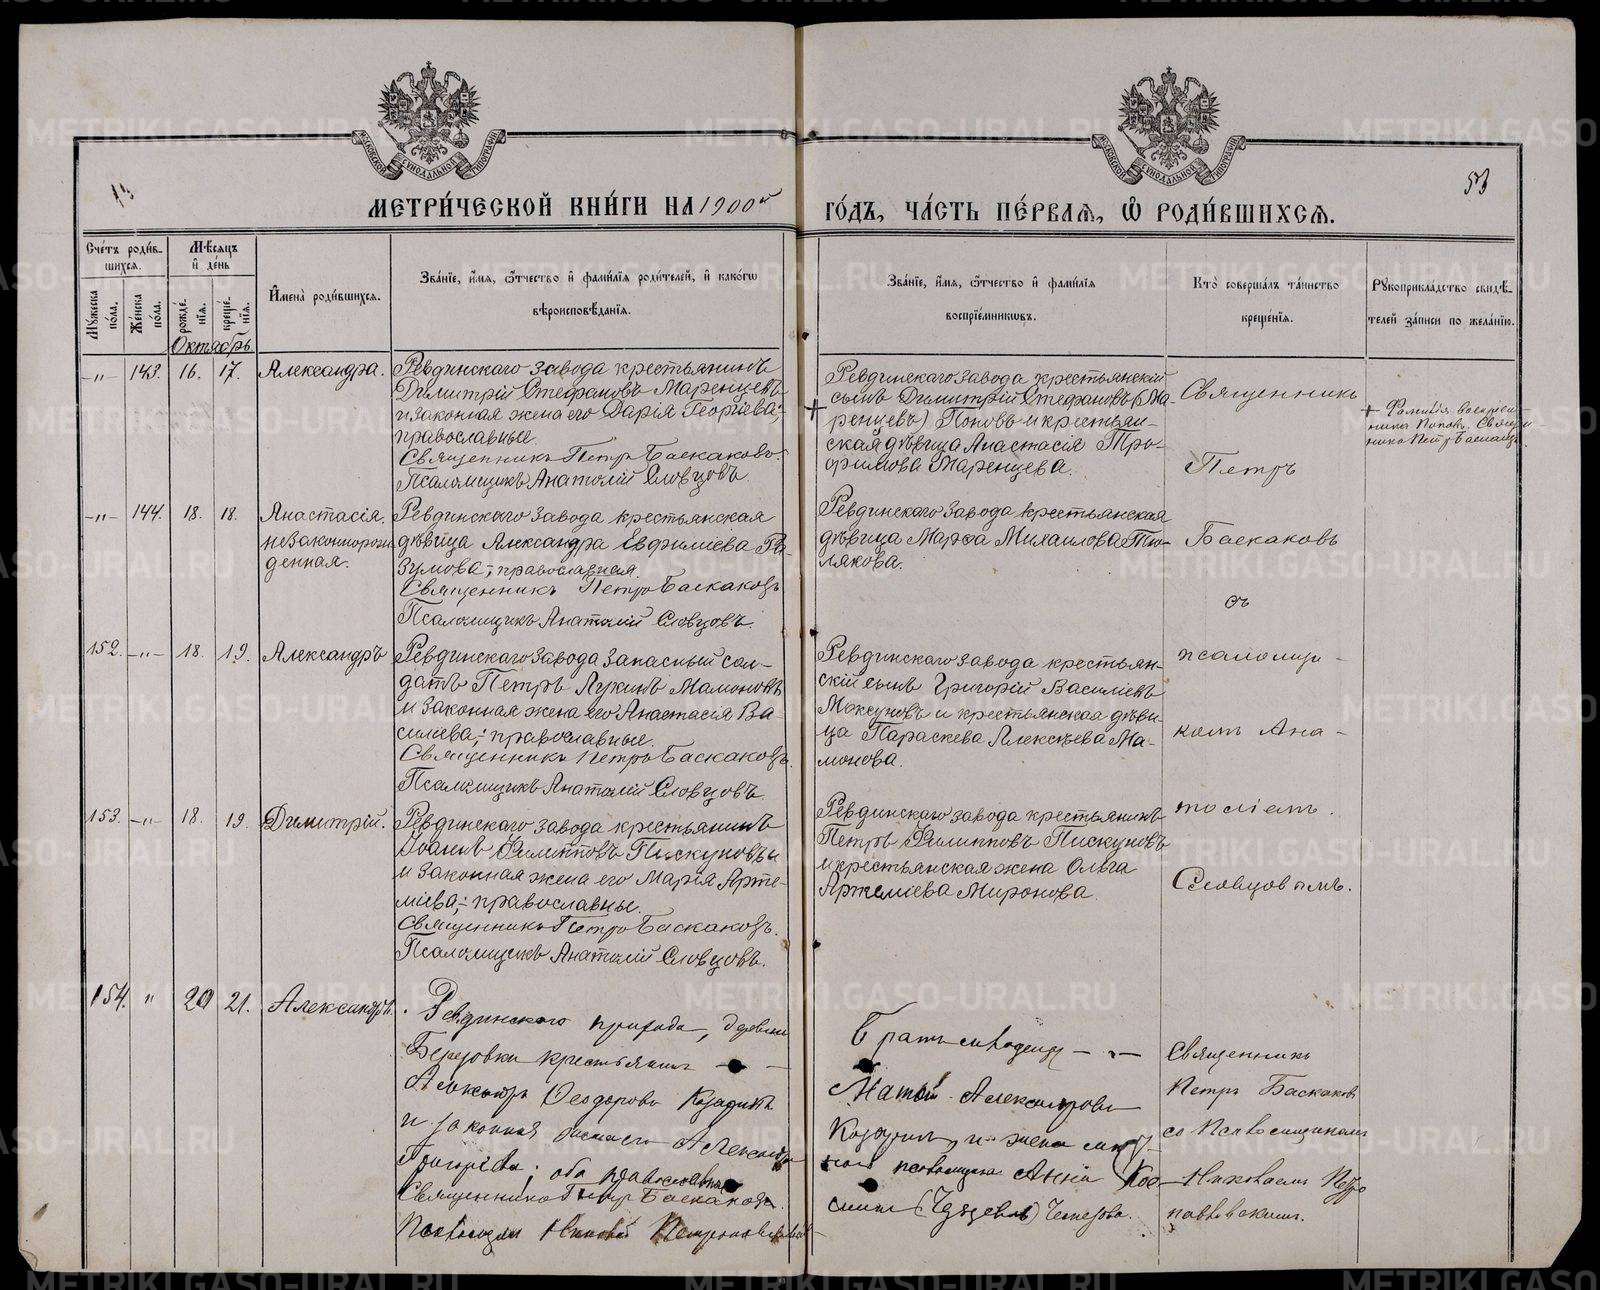 МЕТРИ́ЧЕСКОЙ КНИ́ГИ НА 1900й
ГО́ДЪ, ЧА́СТЬ ПЕ́РВАѦ, Ѽ РОДИ́ВШИХСѦ.
53
Сче́тъ роди́в-
шихся.
Мꙋ́жеска по́ла.
Же́нска по́ла.
Мѣ́сяцъ
и҆ де́нь
рожде́нїѧ.
креще́нїѧ.
Октябрь
И҆мена̀ роди́вшихсѧ.
Зва́нїе, и҆́мѧ, ѻ҆́тчество и҆ фами́лїѧ роди́телей, и҆ како́гѡ
вѣроисповѣ́данїѧ.
Зва́нїе, и҆́мѧ, ѻ҆́тчество и҆ фами́лїѧ
воспрїе́мникѡвъ.
Кто̀ соверша́лъ та́инство
креще́нїѧ.
Рꙋкоприкла́дство свидѣ́-
телей за́писи по жела́нїю.
-„- 143. 16. 17. Александра.
Ревдинскаго завода крестьянинъ
Димитрій Стефановъ Маренцевъ
и законная жена его Дарія Георгіева;
православные.
Священникъ Петръ Баскаковъ.
Псаломщикъ Анатолій Словцовъ.
Ревдинскаго завода крестьянскій
сынъ Димитрій Стефановъ (Ма-
ренцевъ) Поповъ и крестьян-
ская дѣвица Анастасія Тро-
фимова Маренцева.
Священникъ
Петръ
Баскаковъ
съ
псаломщи-
комъ Ана-
толіемъ
Словцовымъ.
-„- 144. 18. 18. Анастасія,
незаконнорож-
денная.
Ревдинскаго завода крестьянская
дѣвица Александра Евфиміева Ра-
зумова; православная.
Священникъ Петръ Баскаковъ
Псаломщикъ Анатолій Словцовъ.
Ревдинскаго завода крестьянская
дѣвица Марѳа Михаилова Тю-
лякова.
152. -„- 18. 19. Александръ
Ревдинскаго завода запасный сол-
датъ Петръ Лукинъ Мамоновъ
и законная жена его Анастасія Ва-
силіева; православные.
Священникъ Петръ Баскаковъ.
Псаломщикъ Анатолій Словцовъ.
Ревдинскаго завода крестьян-
скій сынъ Григорій Василіевъ
Моксуновъ и крестьянская дѣви-
ца Параскева Алексѣева Ма-
монова.
153. -„- 18. 19. Димитрій.
Ревдинскаго завода крестьянинъ
Іоаннъ Филипповъ Пискуновъ
и законная жена его Марія Арте-
міева; православны.
Священникъ Петръ Баскаковъ.
Псаломщикъ Анатолій Словцовъ.
Ревдинскаго завода крестьянинъ
Петръ Филипповъ Пискуновъ
и крестьянская жена Ольга
Артеміева Миронова.
154. „ 20 21. Александръ.
Ревдинскаго прихода, деревни
крестьянинъ
Александръ Ѳеодоровъ
и законная жена его Александра
Григорьева; оба православные
Священникъ Петръ Баскаковъ.
Псаломщикъ Николай Петропавловскій
Александровъ
и жена
псаломщика Анна
Священникъ
Петръ Баскаковъ
со Псаломщикомъ
Николаемъ Петро
павловскимъ.
METRIKI.GASO-URAL.RU